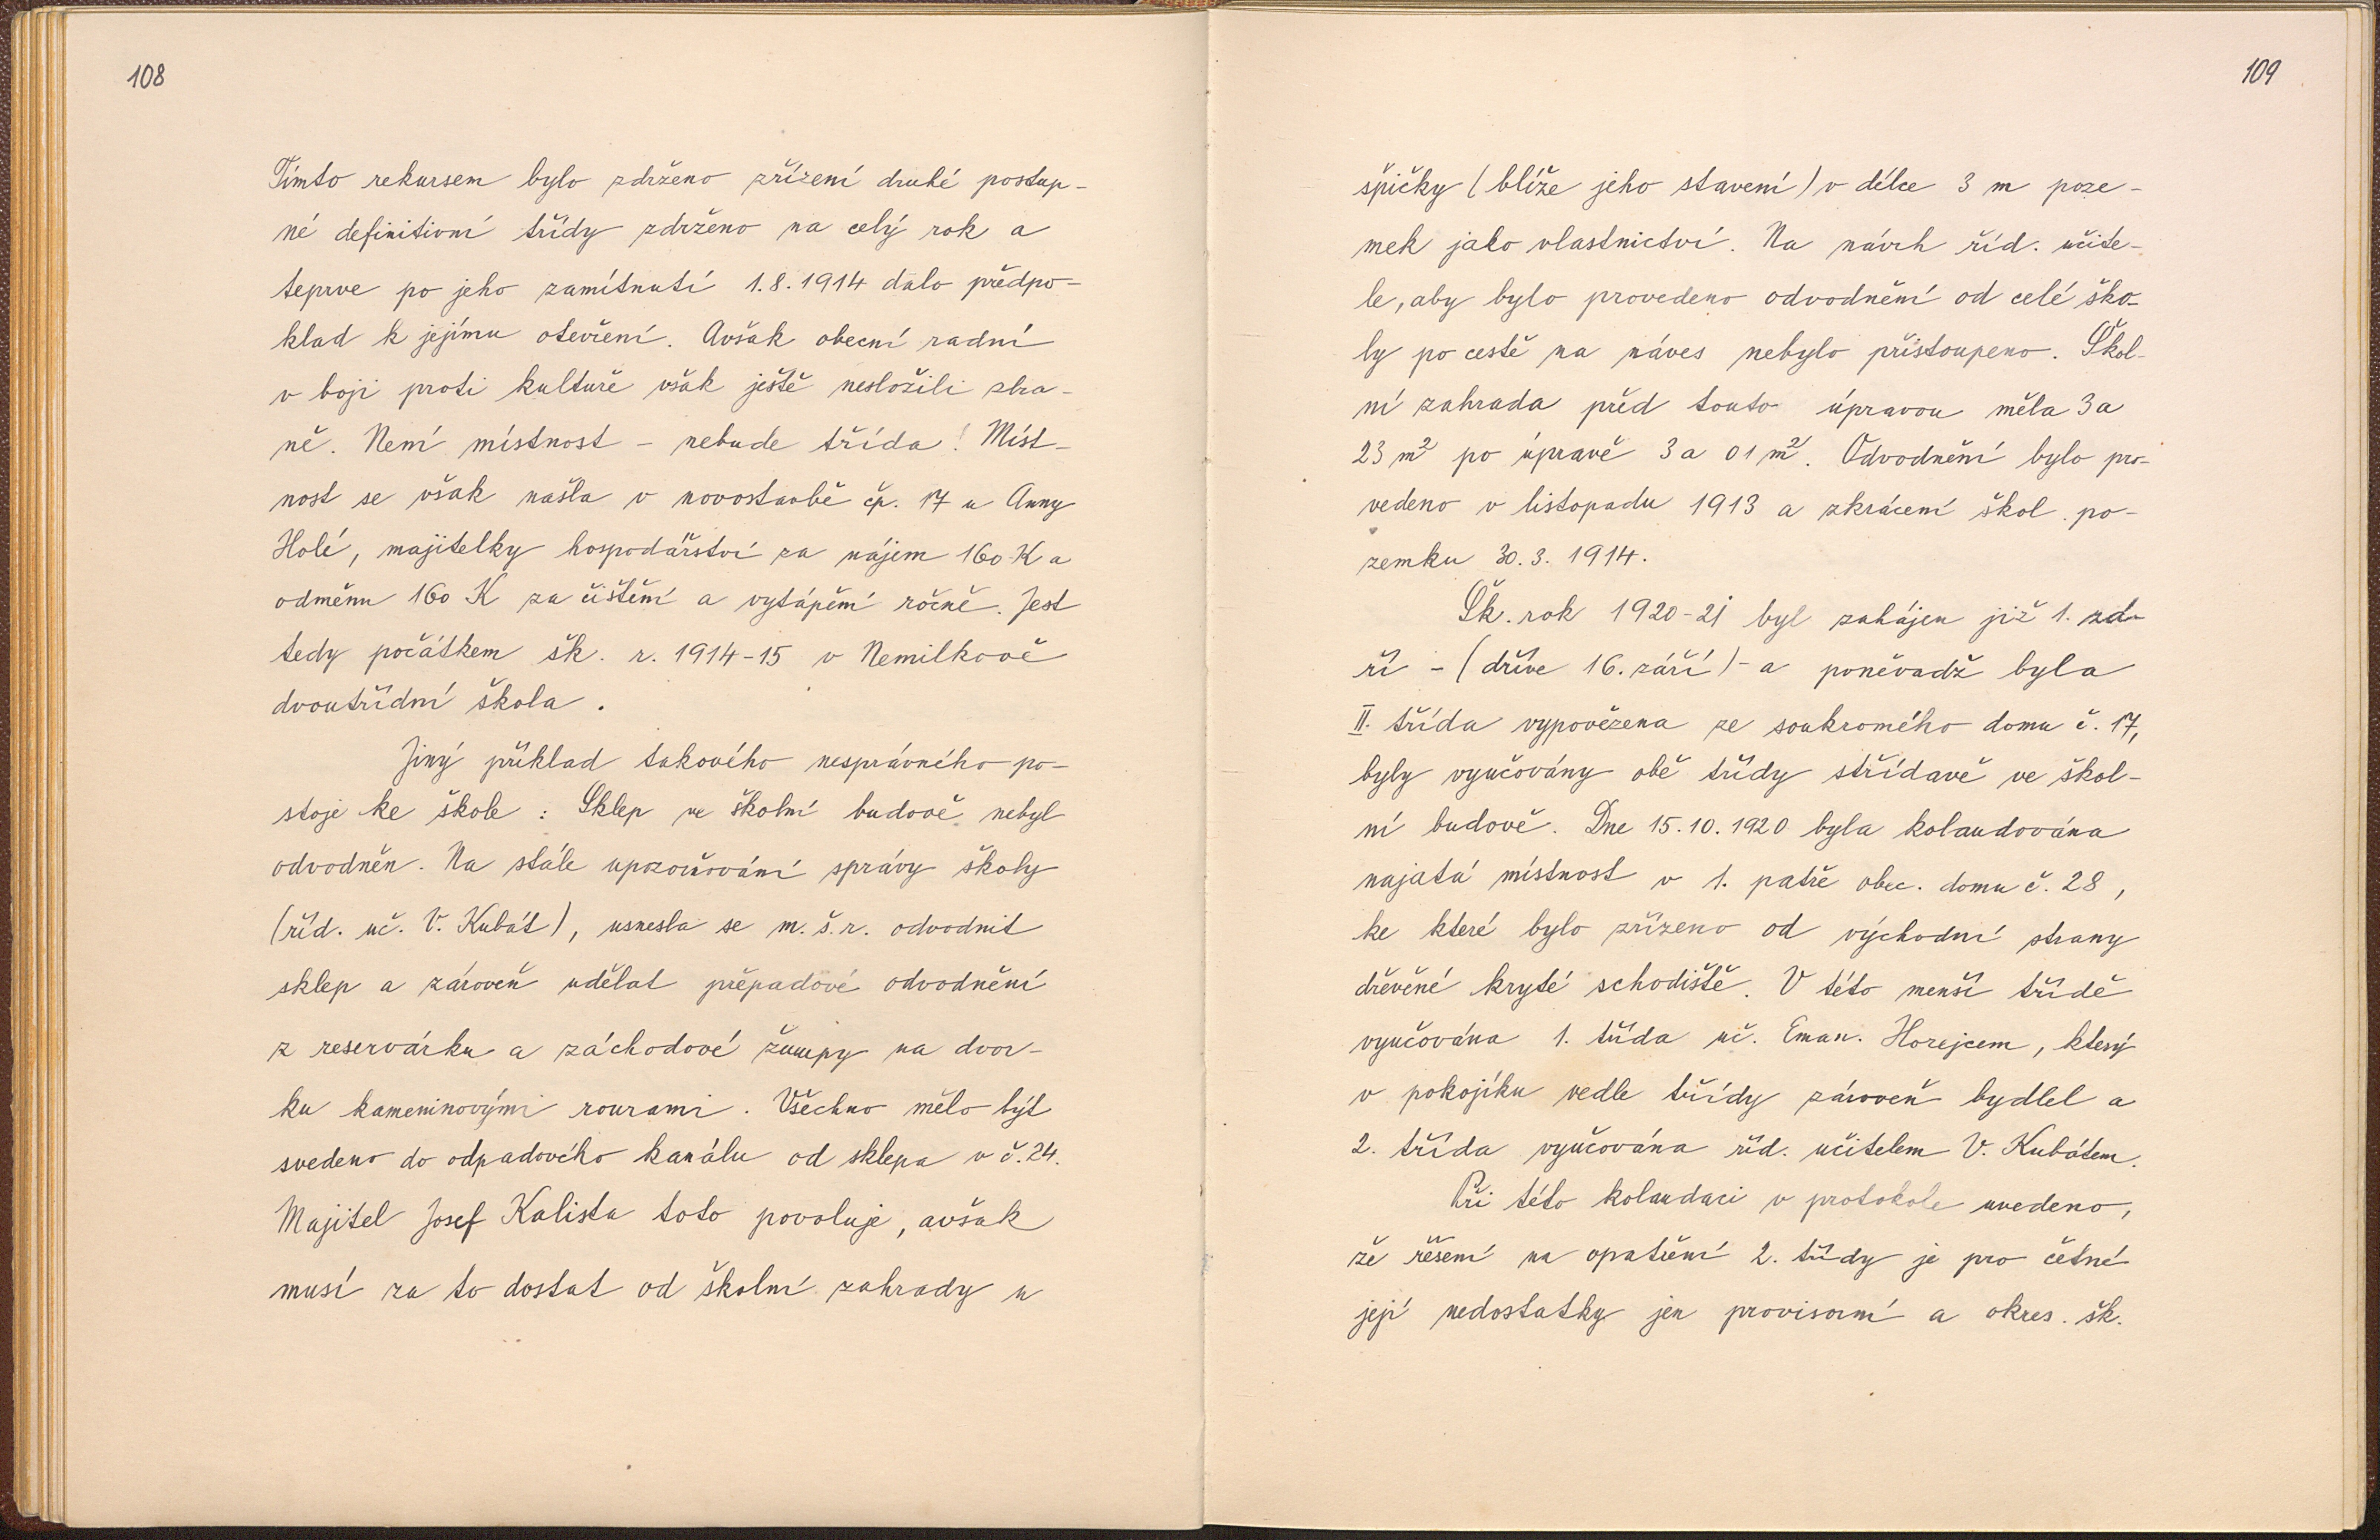 108
Tímto rekursem bylo zdrženo zřízení druhé postup-
né definitivní třídy zdrženo na celý rok a
teprve po jeho zamítnutí 1.8.1914 dalo předpo-
klad k jejímu otevření. Avšak obecní radní
v boji proti kultuře však ještě nesložili zbra-
ně. Není místnost - nebude třída! Míst-
nost se však našla v novostavbě čp. 17 u Anny
Holé, majitelky hospodářství za nájem 160 K a
odměnu 160 K za čištění a vytápění ročně. Jest
tedy počátkem šk. r. 1914-15 v Nemilkově
dvoutřídní škola.
Jiný příklad takového nesprávného po-
stoje ke škole: Sklep ve školní budově nebyl
odvodněn. Na stálé upozorňování správy školy
(říd. uč. V. Kubát), usnesla se m. š. r. odvodnit
sklep a zároveň udělat přepadové odvodnění
z reservárku a záchodové žumpy na dvor-
ku kameninovými rourami. Všechno mělo být
svedeno do odpadového kanálu od sklepa v č. 24.
Majitel Josef Kalista toto povoluje, avšak
musí za to dostat od školní zahrady u
109
špičky (blíže jeho stavení) v délce 3 m poze-
mek jako vlastnictví. Na návrh říd. učite-
le, aby bylo provedeno odvodnění od celé ško-
ly po cestě na náves nebylo přistoupeno. Škol-
ní zahrada před touto úpravou měla 3 a
23 m² po úpravě 3 a 01 m². Odvodnění bylo pro-
vedeno v listopadu 1913 a zkrácení škol. po-
zemku 30.3.1914.
Šk. rok 1920-21 byl zahájen již 1. zá-
ří - (dříve 16. září) - a poněvadž byla
II. třída vypovězena ze soukromého domu č. 17,
byly vyučovány obě třídy střídavě ve škol-
ní budově. Dne 15.10.1920 byla kolaudována
najatá místnost v 1. patře obec. domu č. 28,
ke které bylo zřízeno od východní strany
dřevěné kryté schodiště. V této menší třídě
vyučována 1. třída uč. Eman. Horejcem, který
v pokojíku vedle třídy zároveň bydlel a
2. třída vyučována říd. učitelem V. Kubátem.
Při této kolaudaci v protokole uvedeno,
že řešení na opatření 2. třídy je pro četné
její nedostatky jen provisorní a okres. šk.